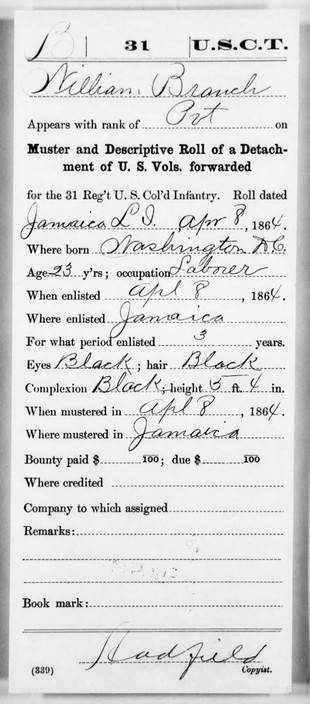 B | 31 | U.S.C.T.
William Branch
Appears with rank of Pvt on
Muster and Descriptive Roll of a Detach-
ment of U. S. Vols. forwarded
for the 31 Reg't U. S. Col'd Infantry. Roll dated
Jamaica L I. Apr 8, 1864.
Where born Washington D.C.
Age 23 y'rs; occupation Laborer
When enlisted Apl 8, 1864.
Where enlisted Jamaica
For what period enlisted 3 years.
Eyes Black; hair Black
Complexion Black; height 5 ft. 4 in.
When mustered in Apl 8, 1864.
Where mustered in Jamaica
Bounty paid $ 100; due $ 100
Where credited
Company to which assigned
Remarks:
Book mark:
Hadfield
(339) Copyist.